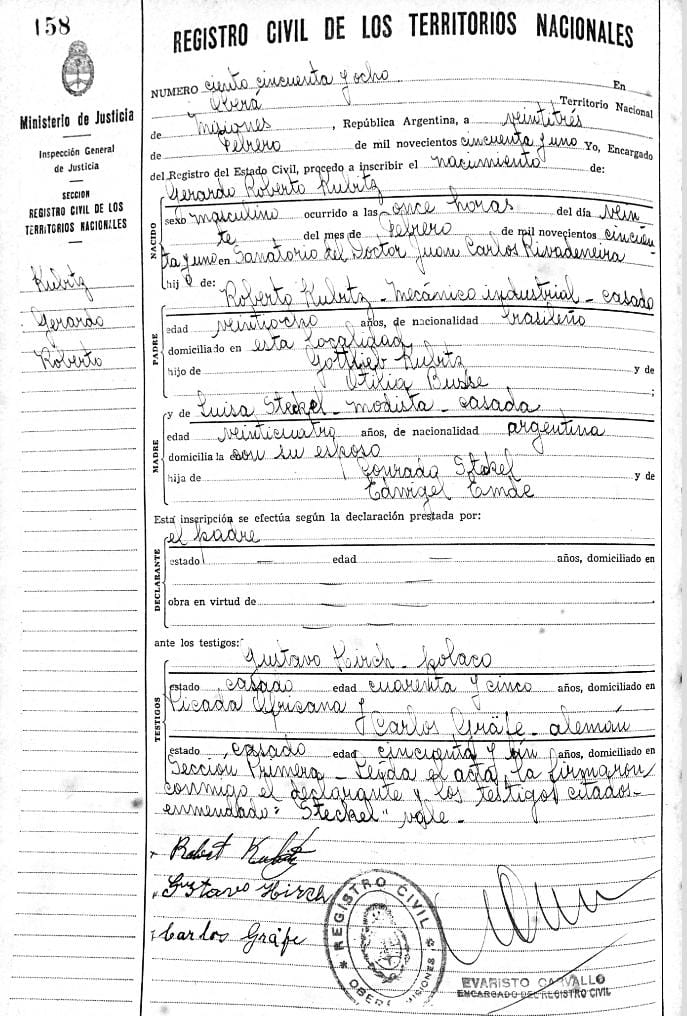 158
REGISTRO CIVIL DE LOS TERRITORIOS NACIONALES
Ministerio de Justicia
Inspección General
de Justicia
SECCION
REGISTRO CIVIL DE LOS
TERRITORIOS NACIONALES
Kubitz
Gerardo
Roberto
NUMERO ciento cincuenta y ocho En
Oberá Territorio Nacional
de Misiones, República Argentina, a veintitrés
de Febrero de mil novecientos cincuenta y uno Yo, Encargado
del Registro del Estado Civil, procedo a inscribir el nacimiento de:
NACIDO
Gerardo Roberto Kubitz
sexo masculino ocurrido a las once horas del día vein
te del mes de Febrero de mil novecientos cincuen
ta y uno en Sanatorio del Doctor Juan Carlos Rivadeneira
hijo de:
PADRE
Roberto Kubitz - mecánico industrial - casado
edad veintiocho años, de nacionalidad brasileño
domiciliado en esta localidad
hijo de Gottlieb Kubitz y de
Otilia Busse ;
MADRE
y de Luisa Steckel - modista - casada
edad veinticuatro años, de nacionalidad argentina
domicilia la en con su esposo
hija de Conrado Steckel y de
Edwigel Emde
Esta inscripción se efectúa según la declaración prestada por:
DECLARANTE
el padre
estado — edad — años, domiciliado en
obra en virtud de
ante los testigos:
TESTIGOS
Gustavo Hirch - polaco
estado casado edad cuarenta y cinco años, domiciliado en
Picada Africana y
Carlos Gräfe - alemán
estado casado edad cincuenta y un años, domiciliado en
Sección Primera - Leída el acta, la firmaron
conmigo el declarante y los testigos citados-
enmendado: "Steckel" vale -
Robert Kubitz
Gustavo Hirch
Carlos Gräfe
REGISTRO CIVIL
OBERÁ MISIONES
EVARISTO CARVALLO
ENCARGADO DEL REGISTRO CIVIL